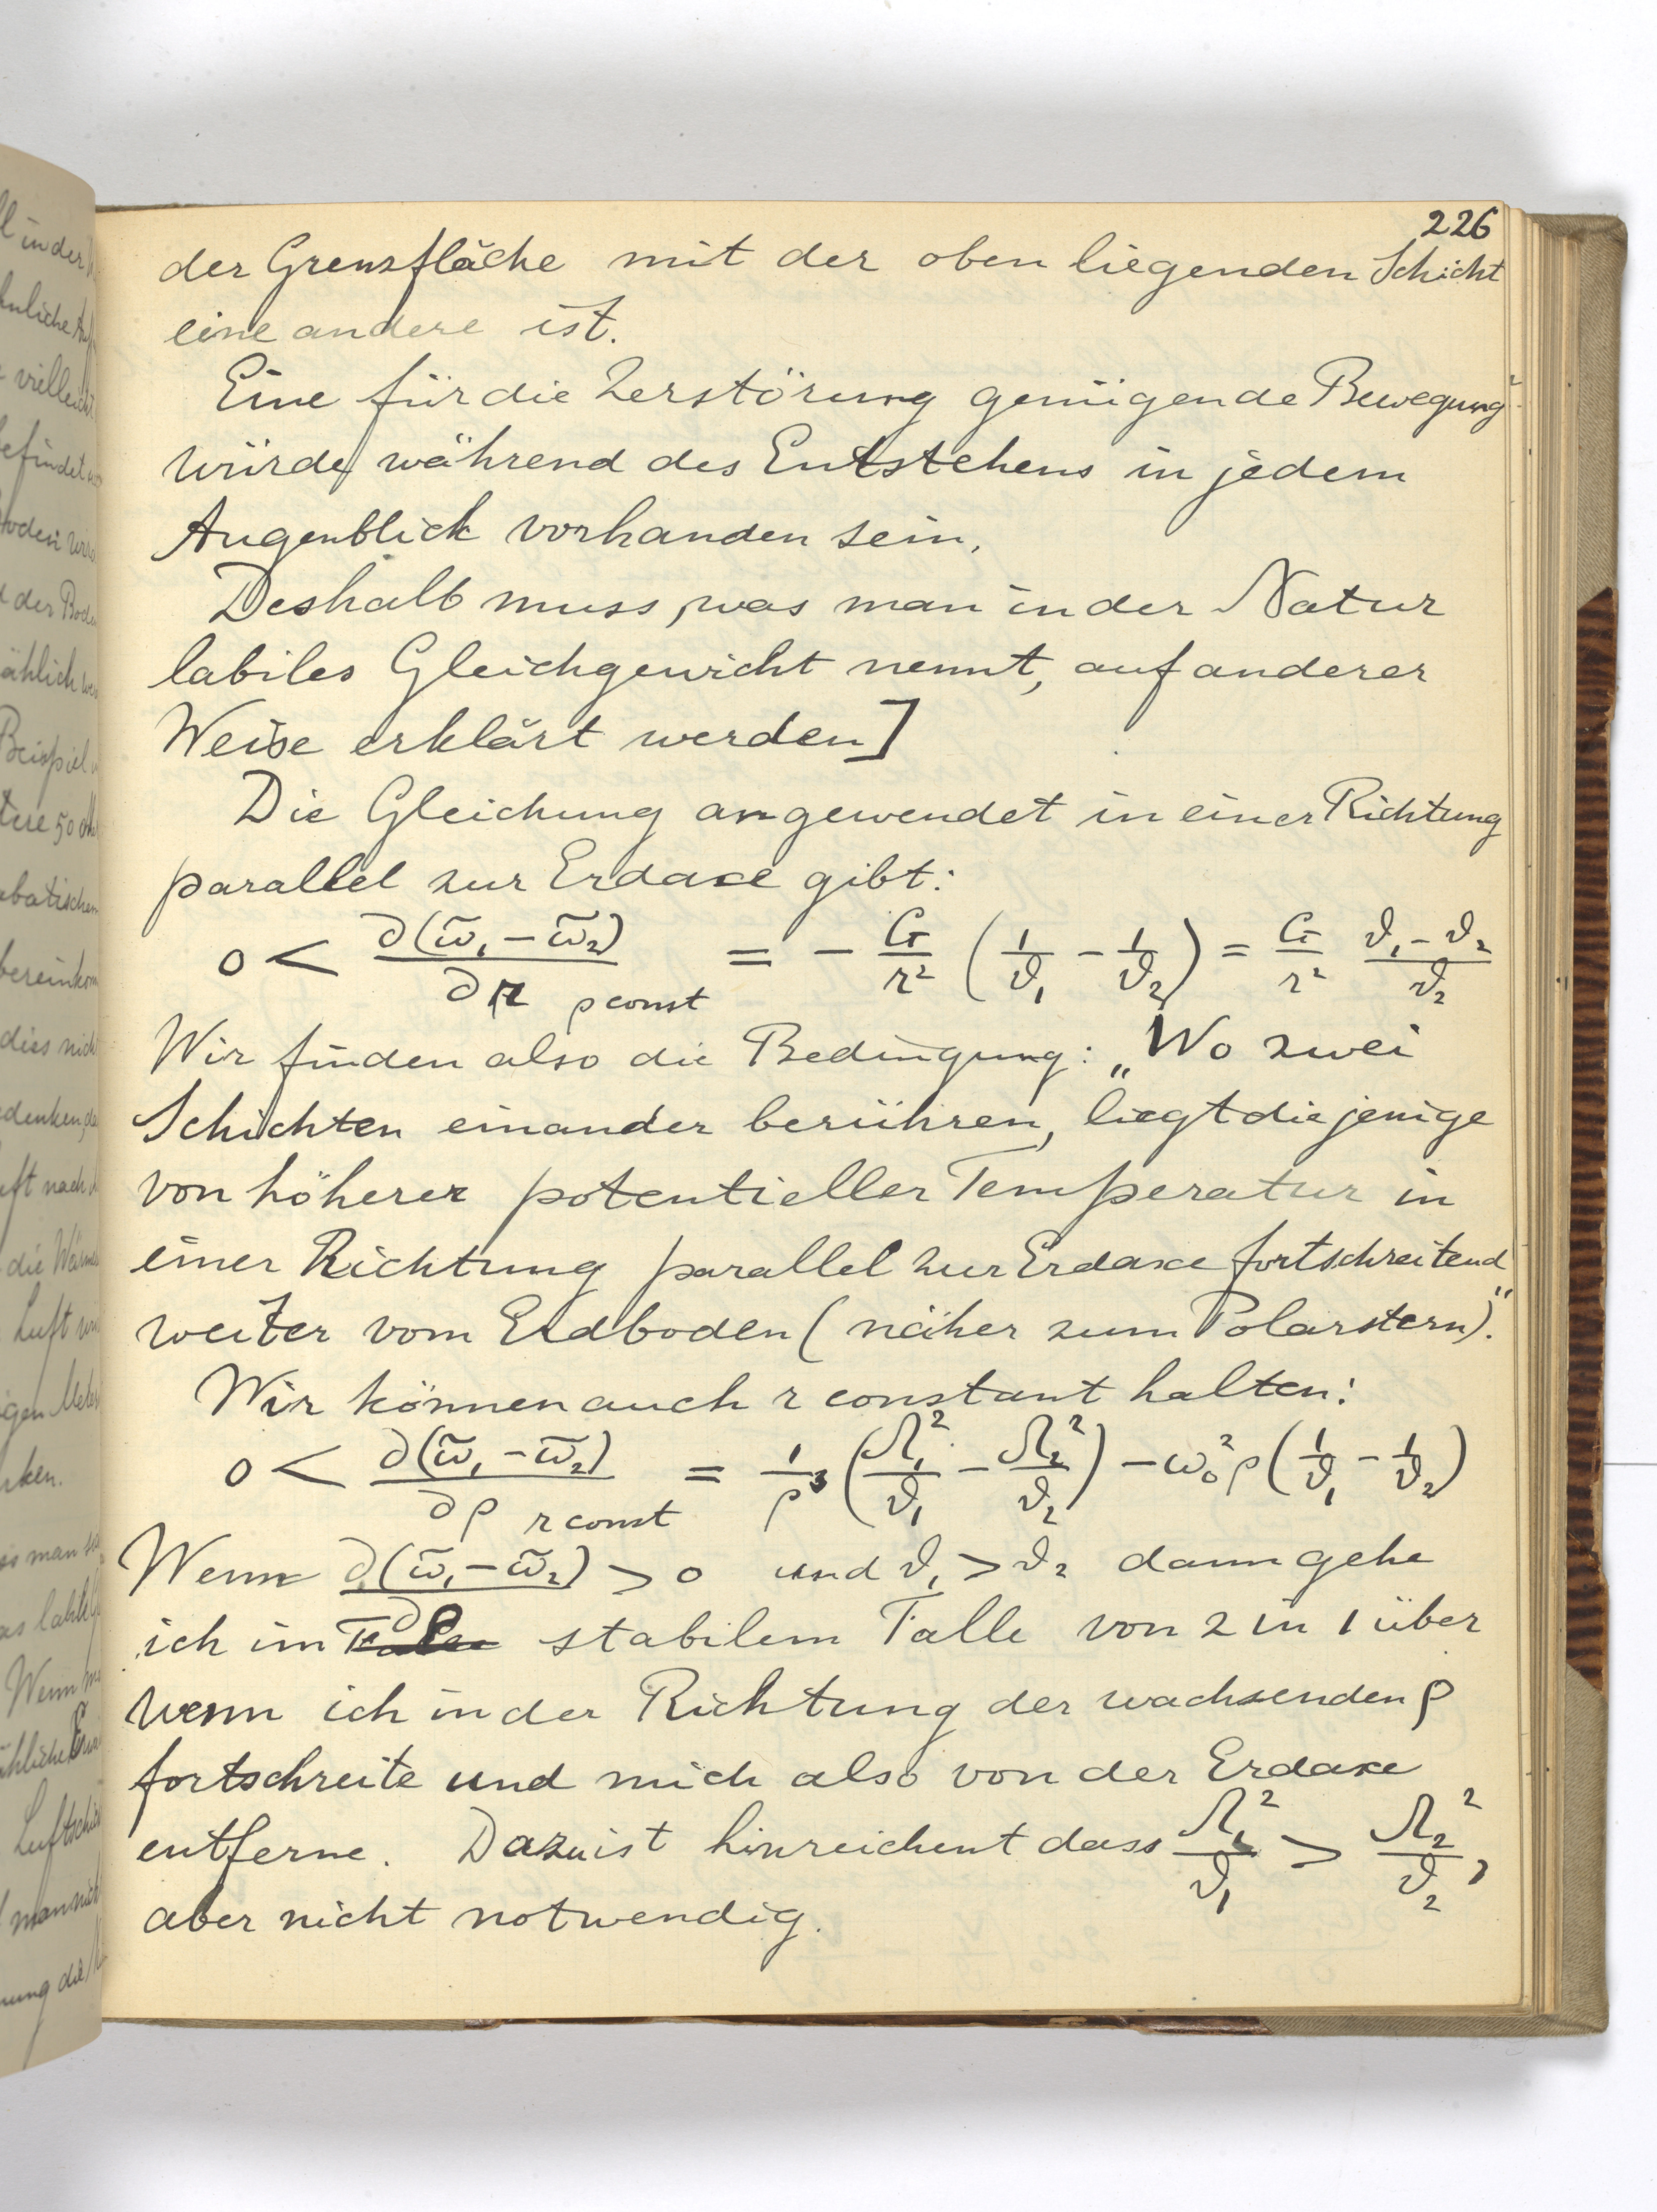 226
der Grenzfläche mit der oben liegenden Schicht
eine andere ist.
Eine für die Zerstörung genügende Bewegung
würde während des Entstehens in jedem
Augenblick vorhanden sein.
Deshalb muss, was man in der Natur
labiles Gleichgewicht nennt, auf anderer
Weise erklärt werden]
Die Gleichung angewendet in einer Richtung
parallel zur Erdaxe gibt:
0 < ∂(ϖ₁ − ϖ₂)/∂r ρ const = − G/r² (1/ϑ₁ − 1/ϑ₂) = G/r² (ϑ₁ − ϑ₂)/ϑ₂
Wir finden also die Bedingung: „Wo zwei
Schichten einander berühren, liegt diejenige
von höherer potentieller Temperatur in
einer Richtung parallel zur Erdaxe fortschreitend
weiter vom Erdboden (näher zum Polarstern)."
Wir können auch r constant halten:
0 < ∂(ϖ₁ − ϖ₂)/∂ρ r const = 1/ρ³ (Ω₁²/ϑ₁ − Ω₂²/ϑ₂) − ω₀²ρ(1/ϑ₁ − 1/ϑ₂)
Wenn ∂(ϖ₁ − ϖ₂)/∂ρ > 0 und ϑ₁ > ϑ₂ dann gehe
ich im stabilem Falle von 2 in 1 über
wenn ich in der Richtung der wachsenden ρ
fortschreite und mich also von der Erdaxe
entferne. Dazu ist hinreichent dass Ω₁²/ϑ₁ > Ω₂²/ϑ₂,
aber nicht notwendig.